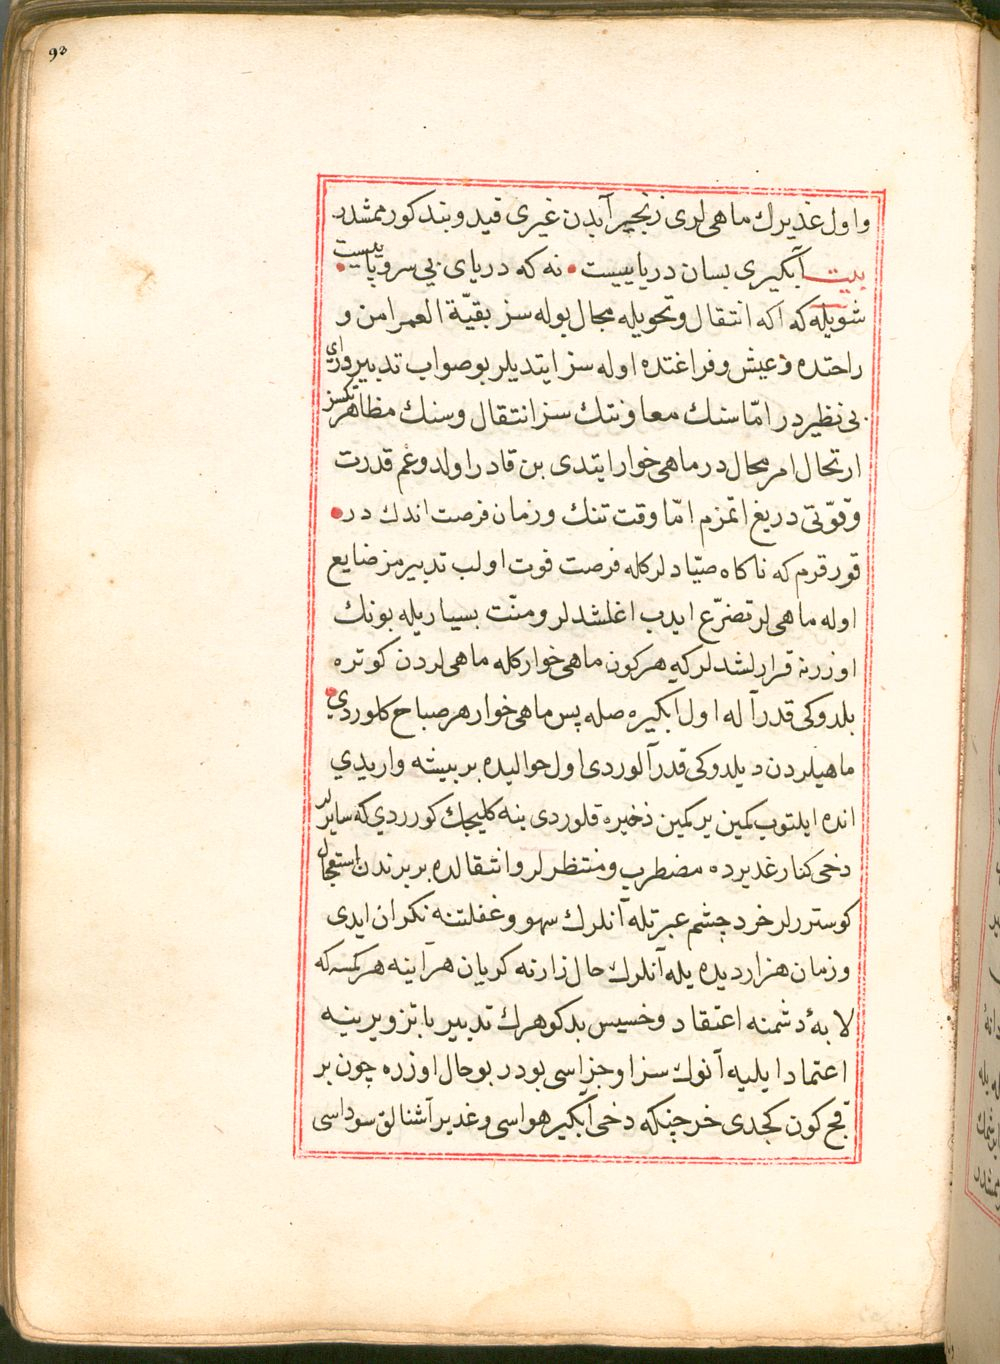 93
و اول غديرك ماهى‌لرى زنجير آبدن غيرى قيد و بند كورممشدر
بيت آبگيرى بسان درياييست • نه كه درياى بى سر و پاييست •
شويله كه اكه انتقال و تحويله مجال بوله سز بقيّة العمر امن و
راحتده و عيش و فراغتده اوله سز ايتديلر بو صواب تدبير و راى
بى نظير در امّا سنك معاونتك سز انتقال و سنك مظاهرتكسز
ارتحال امر محال در ماهى خوار ايتدى بن قادر اولدوغم قدرت
و قوّتى دريغ اتمزم امّا وقت تنك و زمان فرصت اندك در •
قورقرم كه ناكاه صيّادلر كله فرصت فوت اولب تدبيرمز ضايع
اوله ماهى‌لر تضرّع ايدب اغلشدلر و منّت بسيار يله بونك
اوزرنه قرارلشدلر كيه هر كون ماهى خوار كله ماهى‌لردن كوتره
بلدوكى قدر آله اول ابكيره صله پس ماهى خوار هر صباح كلوردي •
ماهيلردن ديلدوكى قدر آلوردى اول حواليده بر بيشه واريدي
انده ايلتوب كمين ير كمين ذخيره قلوردى ينه كليجك كورردي كه سايرلر
دخى كنار غديرده مضطرب و منتظرلر و انتقالده بربرندن استعجال
كوسترلر خرد چشم عبرتله آنلرك سهو و غفلتنه نكران ايدى
و زمان هزار ديده يله آنلرك حال زارنه كريان هر آينه هر كمسه كه
لابهٔ دشمنه اعتقاد و خسيس بدكوهرك تدبير با تزويرينه
اعتماد ايليه آنوك سزا و جزاسى بودر بو حال اوزره چون بر
قچ كون كچدى خرچنكه دخى آبكير هواسى و غدير آشنالق سوداسى